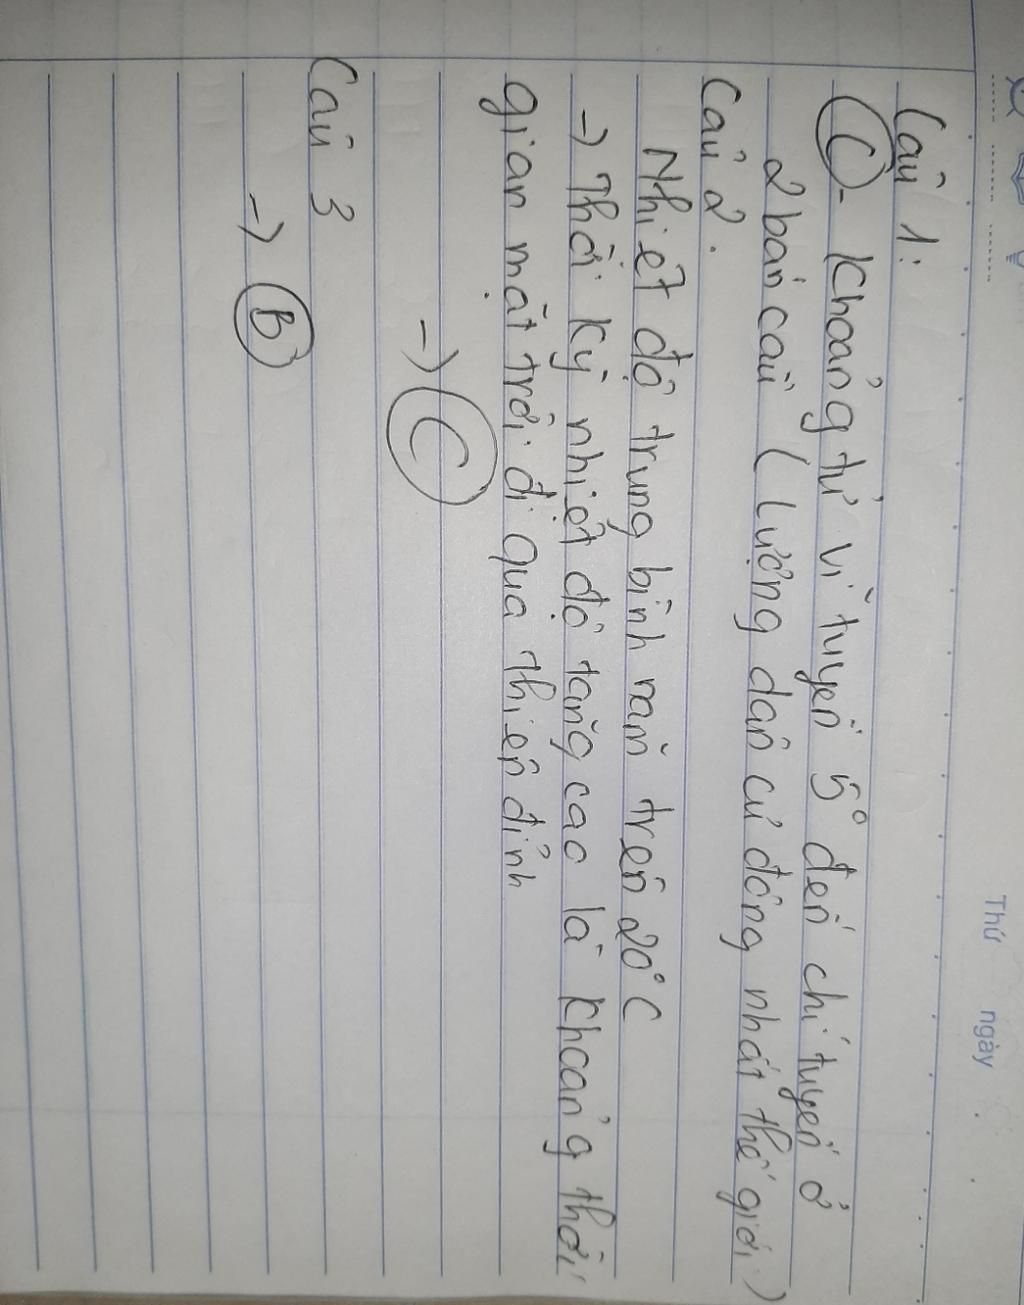 Thứ ngày
Câu 1:
C - Khoảng từ vĩ tuyến 5° đến chí tuyến ở
2 bán cầu (lượng dân cư đông nhất thế giới)
Câu 2.
Nhiệt độ trung bình năm trên 20°C
-> Thời kỳ nhiệt độ tăng cao là khoảng thời
gian mặt trời đi qua thiên đỉnh
-> C
Câu 3
-> B